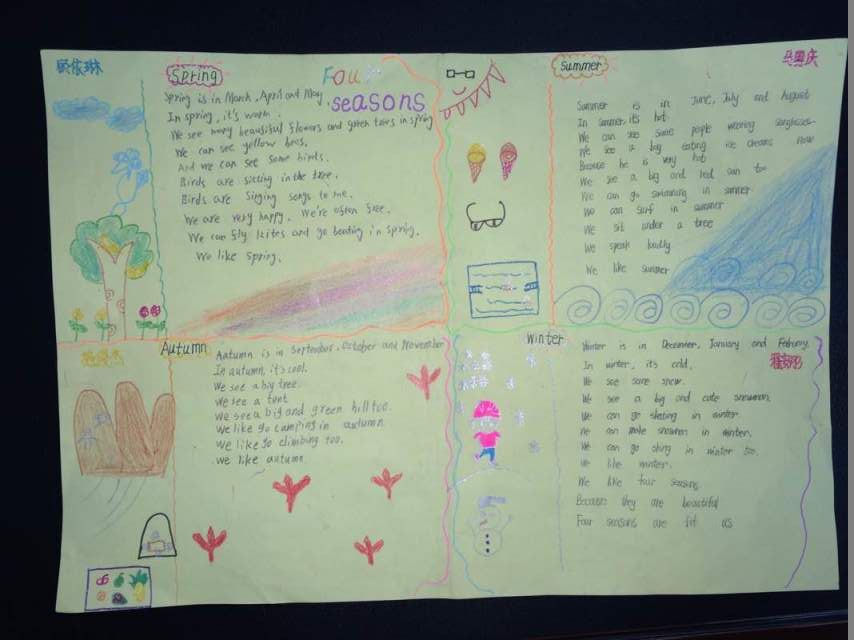 Four
seasons
Spring
Spring is in March, April and May.
In spring, it's warm.
We see many beautiful flowers and green trees in spring
We can see yellow bees.
And we can see some birds.
Birds are sitting in the tree.
Birds are singing songs to me.
We are very happy. We're often free.
We can fly kites and go boating in spring.
We like spring.
Summer
Summer is in June, July and August
In summer, it's hot.
We can see some people wearing sunglasses
We see a boy eating ice creams now
Because he is very hot
We see a big and red sun too
We can go swimming in summer
We can surf in summer
We sit under a tree
We speak loudly
We like summer
Autumn
Autumn is in September, October and November
In autumn, it's cool.
We see a big tree.
We see a tent
We see a big and green hill too.
We like go camping in autumn
We like go climbing too.
We like autumn
Winter
Winter is in December, January and
In winter, it's cold.
We see some snow.
We see a big and cute snowman.
We can go skating in winter
We can make snowmen in winter.
We can go skiing in winter too.
We like winter.
We like four seasons
Because they are beautiful
Four seasons are for us